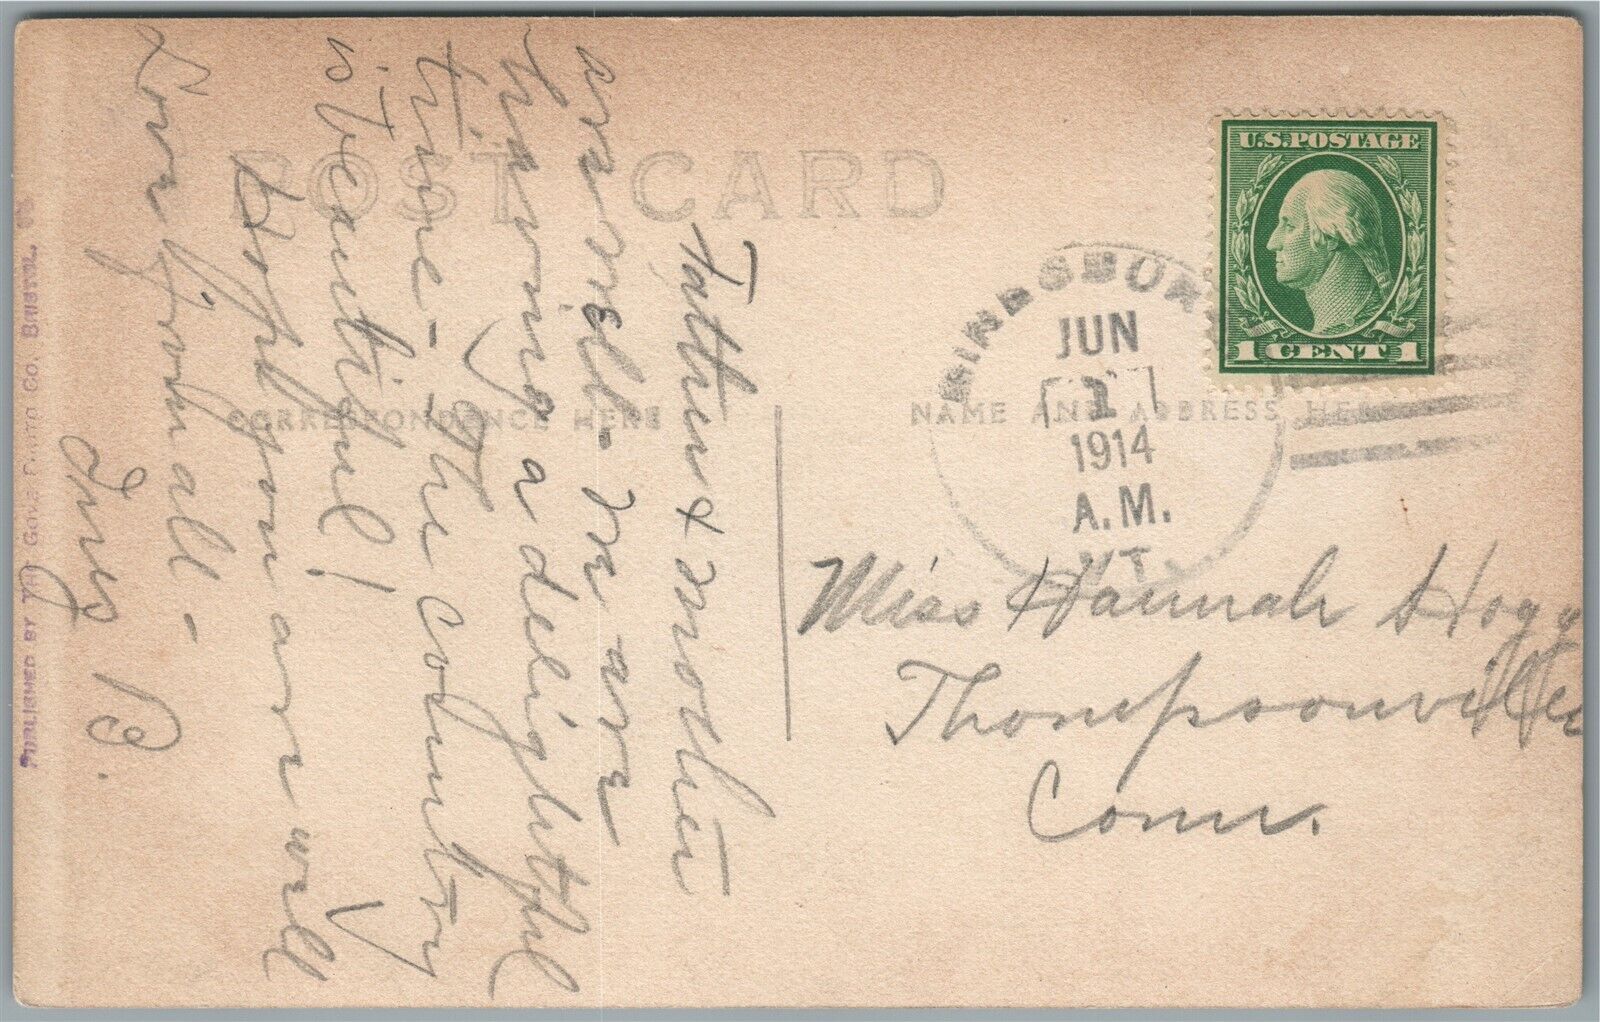 POST CARD
CORRESPONDENCE HERE
NAME AND ADDRESS HERE
U.S. POSTAGE
1 CENT 1
HINESBURG
JUN
1
1914
A.M.
VT.
Father & Mother
are well - We are
having a delightful
time - The country
is beautiful!
Hope you are well
Love from all -
Inez B.
Miss Hannah Hogg
Thompsonville
Conn.
PUBLISHED BY THE GOVE PHOTO CO., BRISTOL,